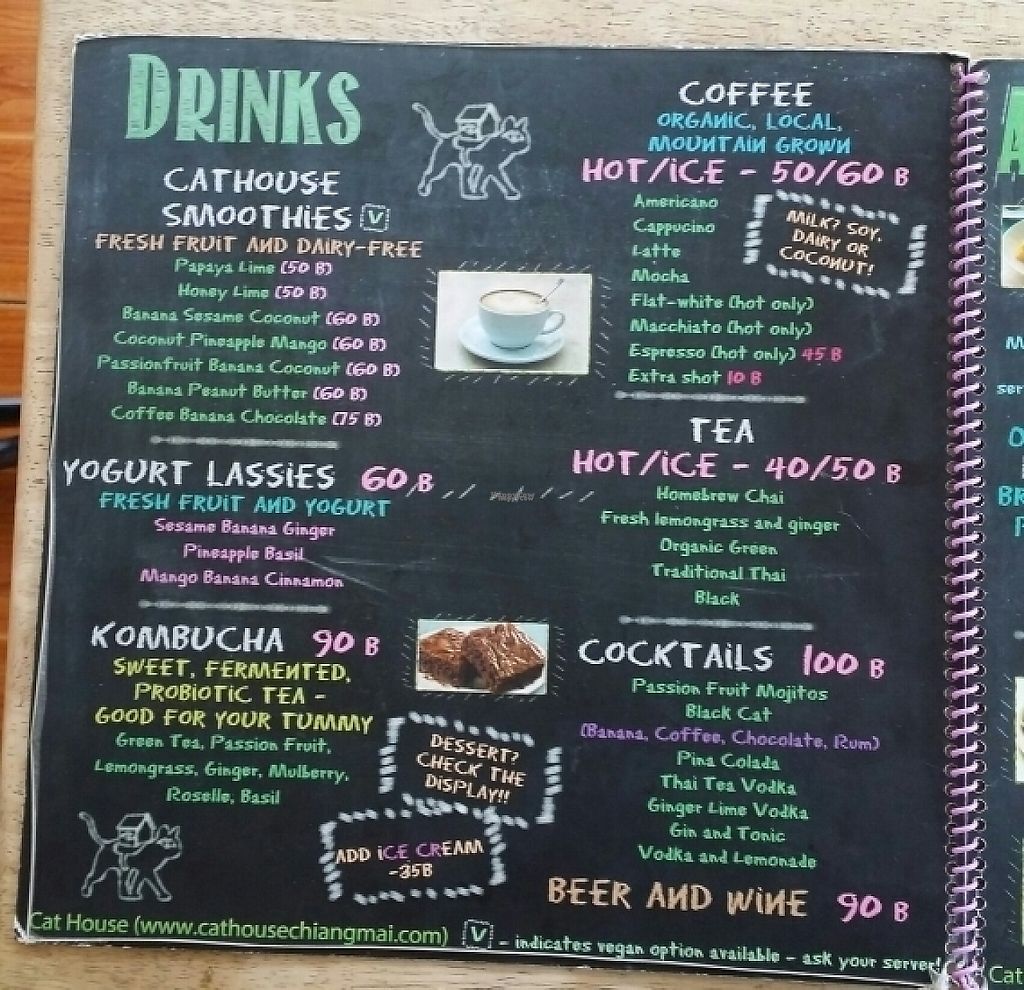 DRINKS
CATHOUSE
SMOOTHiES V
FRESH FRUIT AND DAIRY-FREE
Papaya Lime (50 B)
Honey Lime (50 B)
Banana Sesame Coconut (60 B)
Coconut Pineapple Mango (60 B)
Passionfruit Banana Coconut (60 B)
Banana Peanut Butter (60 B)
Coffee Banana Chocolate (75 B)
YOGURT LASSiES 60 B
FRESH FRUIT AND YOGURT
Sesame Banana Ginger
Pineapple Basil
Mango Banana Cinnamon
KOMBUCHA 90 B
SWEET, FERMENTED,
PROBIOTIC TEA -
GOOD FOR YOUR TUMMY
Green Tea, Passion Fruit,
Lemongrass, Ginger, Mulberry,
Roselle, Basil
DESSERT?
CHECK THE
DiSPLAY!!
ADD iCE CREAM
-35B
COFFEE
ORGANIC, LOCAL,
MOUNTAIN GROWN
HOT/iCE - 50/60 B
Americano
Cappucino
Latte
Mocha
Flat-white (hot only)
Macchiato (hot only)
Espresso (hot only) 45 B
Extra shot 10 B
MiLK? SOY,
DAIRY OR
COCONUT!
TEA
HOT/iCE - 40/50 B
Homebrew Chai
Fresh lemongrass and ginger
Organic Green
Traditional Thai
Black
COCKTAiLS 100 B
Passion Fruit Mojitos
Black Cat
(Banana, Coffee, Chocolate, Rum)
Pina Colada
Thai Tea Vodka
Ginger Lime Vodka
Gin and Tonic
Vodka and Lemonade
BEER AND WiNE 90 B
Cat House (www.cathousechiangmai.com)
V - indicates vegan option available - ask your server!
Cat